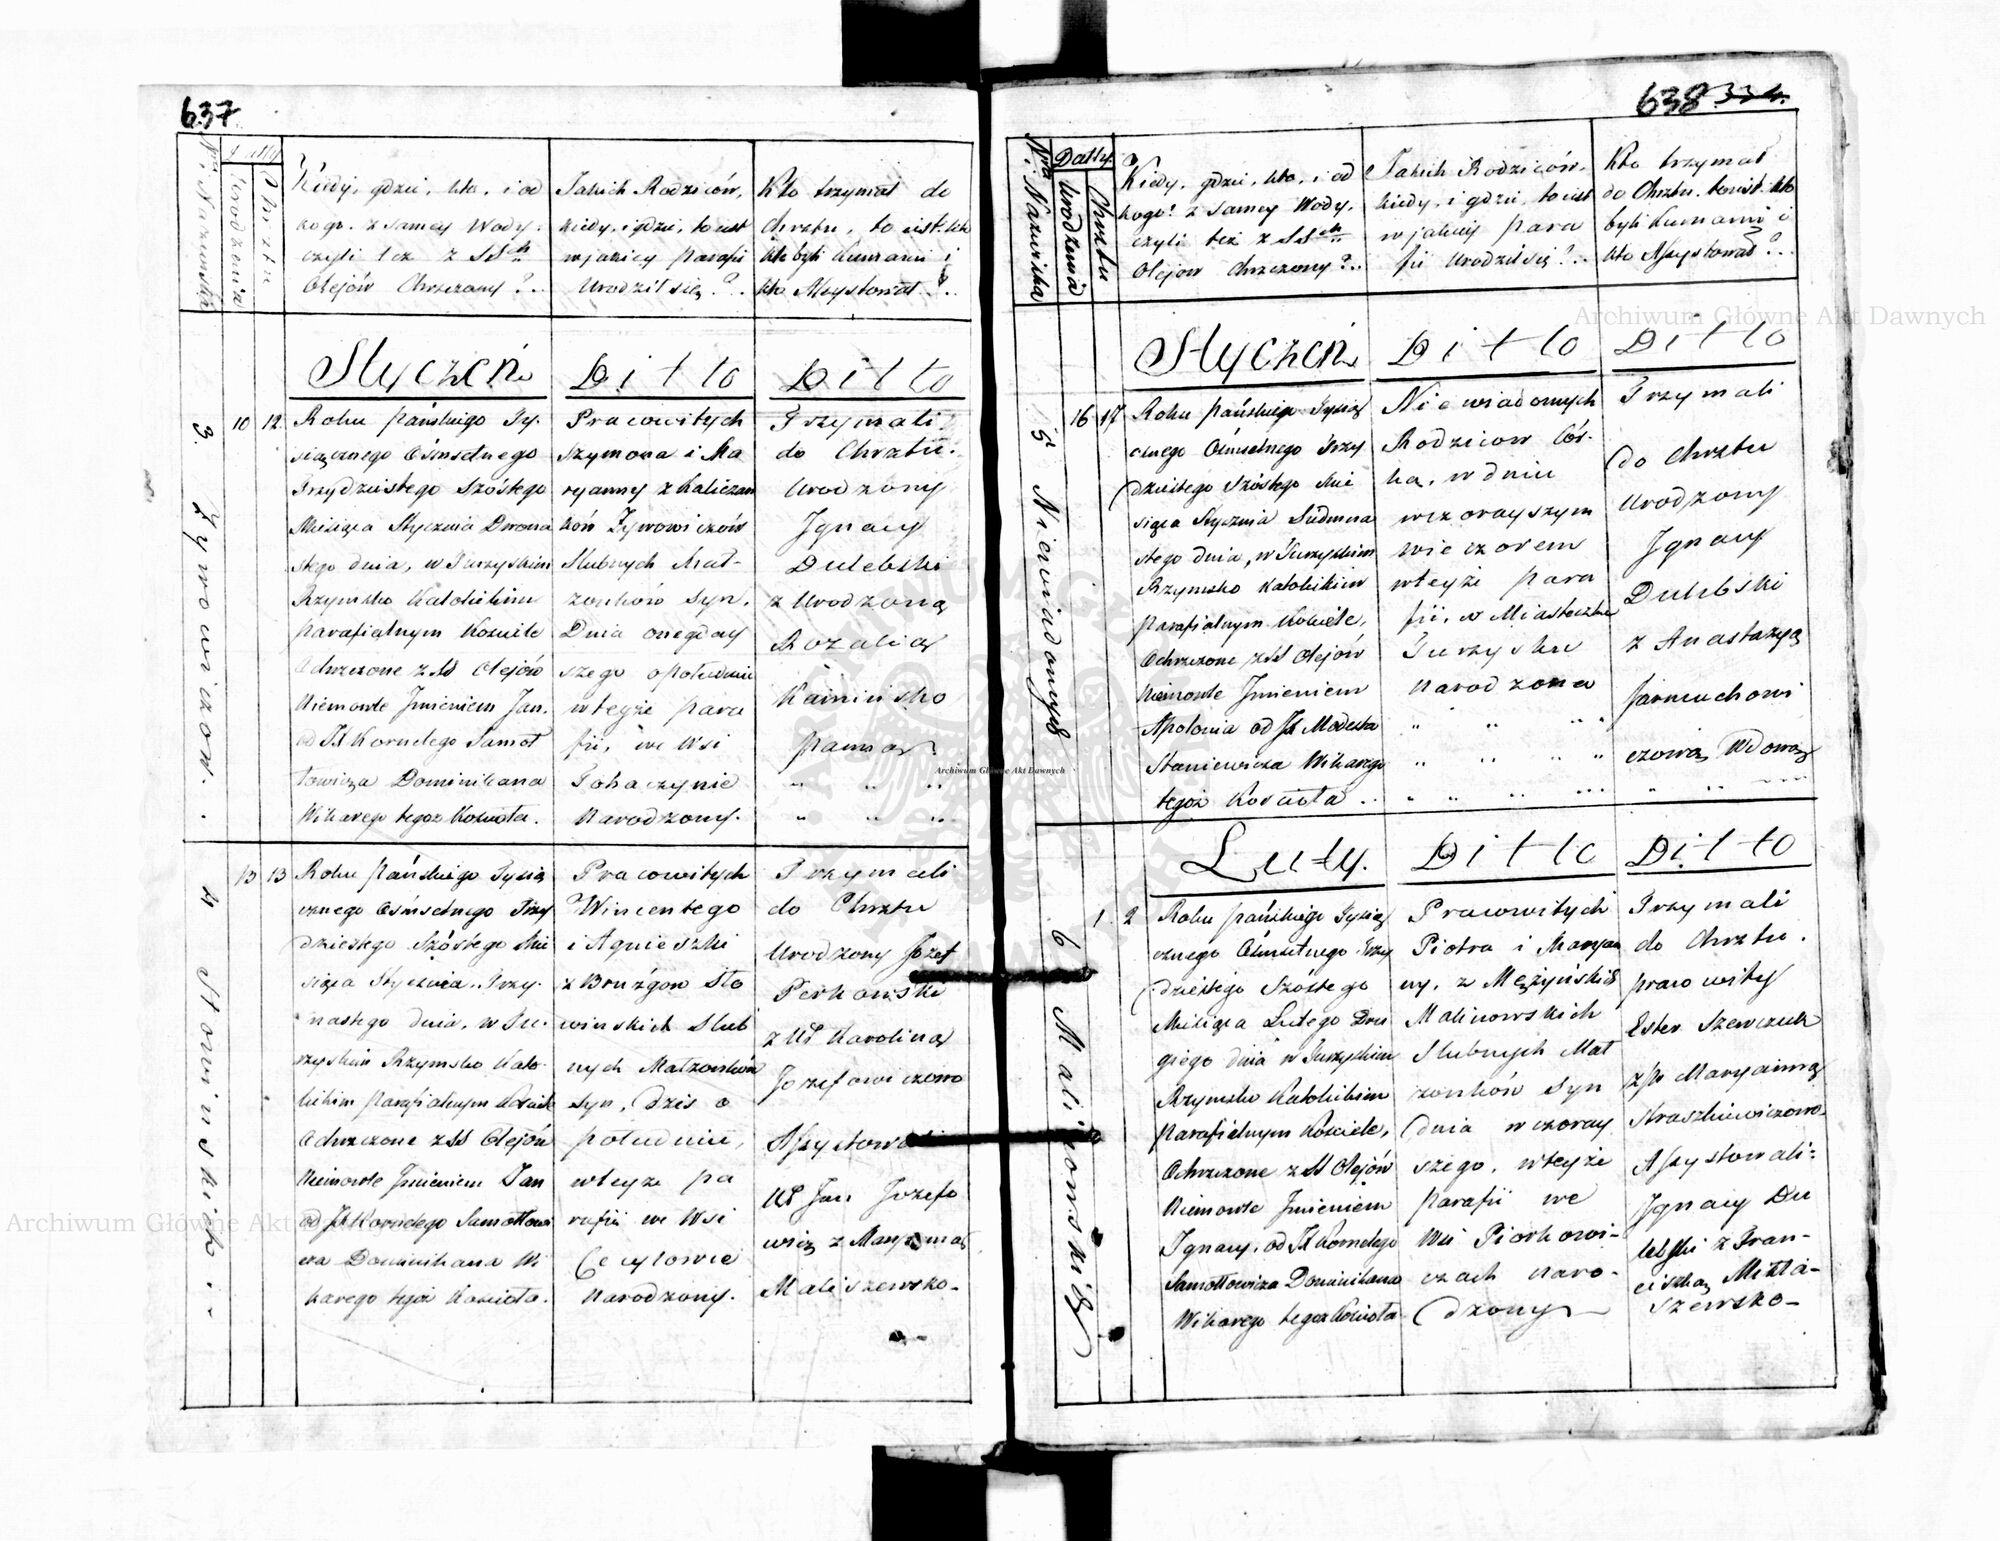 637
Nr. i Nazwiska
Datty
Urodzenia
Chrztu
Kiedy, gdzie, kto, i od
kogo. z samey Wody.
czyli też z SSch
Olejów Chrzczony?..
Jakich Rodziców,
kiedy, i gdzie, to iest
w jakiey Parafii
Urodził się?..
Kto trzymał do
Chrztu, to iest: kto
kto byli Kumami i
kto Assystował?..
Styczeń
Ditto
Ditto
3. Zywowiczow.
10
12
Roku Pańskiego Ty-
siącznego Ośmsetnego
Trzydziestego Szóstego
Miesiąca Stycznia Dwona
stego dnia, w Turzyskim
Rzymsko Katolickim
Parafialnym Kosciele
Ochrzczone z SS Olejów
Niemowle Jmieniem Jan.
od JX Kornelego Samot
łowicza Dominikana
Wikarego tegoż Koscioła.
Pracowitych
Szymona i Ma
ryanny z Kaliczan
ków Zywowiczów
Slubnych Mał-
żonków Syn,
Dnia onegday
szego opołudniu
wteyże Para
fii, we Wsi
Tohaczynie
Narodzony.
Trzymali
do Chrztu.
Urodzony
Jgnacy
Dulebski
z Urodzoną
Rozalią
Kaminsko
Panną.
4 Słowinskich
13
13
Roku Pańskiego Tysią
cznego Ośmsetnego Trzy
dziestego Szóstego Mie
siąca Stycznia.. Trzy-
nastego dnia, w Tu-
rzyskim Rzymsko Kato
lickim Parafialnym Kosciele
Ochrzczone z SS Olejów
Niemowle Jmieniem Jan
od JX Kornelego Samotłowi
cza Dominikana Wi
karego tegoż Koscioła.
Pracowitych
Wincentego
i Agnieszki
z Bruzgow Sło
winskich Slub
nych Małżonków
Syn, Dzis o
południu,
wteyże pa
rafii we Wsi
Cecylowie
Narodzony.
Trzymali
do Chrztu
Urodzony Jozef
Perkowski
z UP Karoliną
Jozefowiczowo
Assystowali
UP Jan Jozefo
wicz z Maryanną
Maliszewsko-
638 334.
Nra i Nazwiska
Datty
Urodzenia
Chrztu
Kiedy, gdzie, kto, i od
kogo? z samey Wody,
czyli też z SSch
Olejow Chrzczony?..
Jakich Rodziców.
kiedy, i gdzie, to iest
w jakiey Para
fii Urodził się?..
Kto trzymał
do Chrztu. to iest. kto
byli Kumami i
kto Assystował?..
Styczeń
Ditto
Ditto
5 Niewiadomych
16
17
Roku Pańskiego Tysią
cznego Ośmsetnego Trzy
dziestego Szóstego Mie
siąca Stycznia Siedmna
stego dnia, w Turzyskim
Rzymsko Katolickim
Parafialnym Kosciele,
Ochrzczone z SS Olejów
Niemowle Jmieniem
Apolonia od JX Modesta
Staniewicza Wikarego
tegoż Koscioła..
Niewiadomych
Rodzicow Cór-
ka, w dniu
wczorayszym
wieczorem
wteyże para
fii, w Miasteczku
Turzysku
Narodzona
Trzymali
do Chrztu
Urodzony
Jgnacy
Dulebski
z Anastazyą
Jarmuchowi
czową Wdową
Luty.
Ditto
Ditto
6 Malinowskich
1.
2
Roku Pańskiego Tysią
cznego Ośmsetnego Trzy
dziestego Szóstego
Miesiąca Lutego Dru
giego dnia w Turzyskim
Rzymsko Katolickim
Parafialnym Kosciele,
Ochrzczone z SS Olejów
Niemowle Jmieniem
Jgnacy, od JX Kornelego
Samotłowicza Dominikana
Wikarego tegoż Kosciola
Pracowitych
Piotra i Maryan
ny, z Mężyńskich
Malinowskich
Slubnych Mał
żonków Syn
dnia wczoray
szego, wteyże
Parafii we
Wsi Piorkowi-
czach Naro-
dzony
Trzymali
do Chrztu.
pracowity
Ester Szewczuk
z Pr Maryanną
Straszkiewiczowo-
Assystowali-
Jgnacy Du
lebski z Fran-
ciszką
szewsko-
Archiwum Główne Akt Dawnych
Archiwum Główne Akt Dawnych
Archiwum Główne Akt